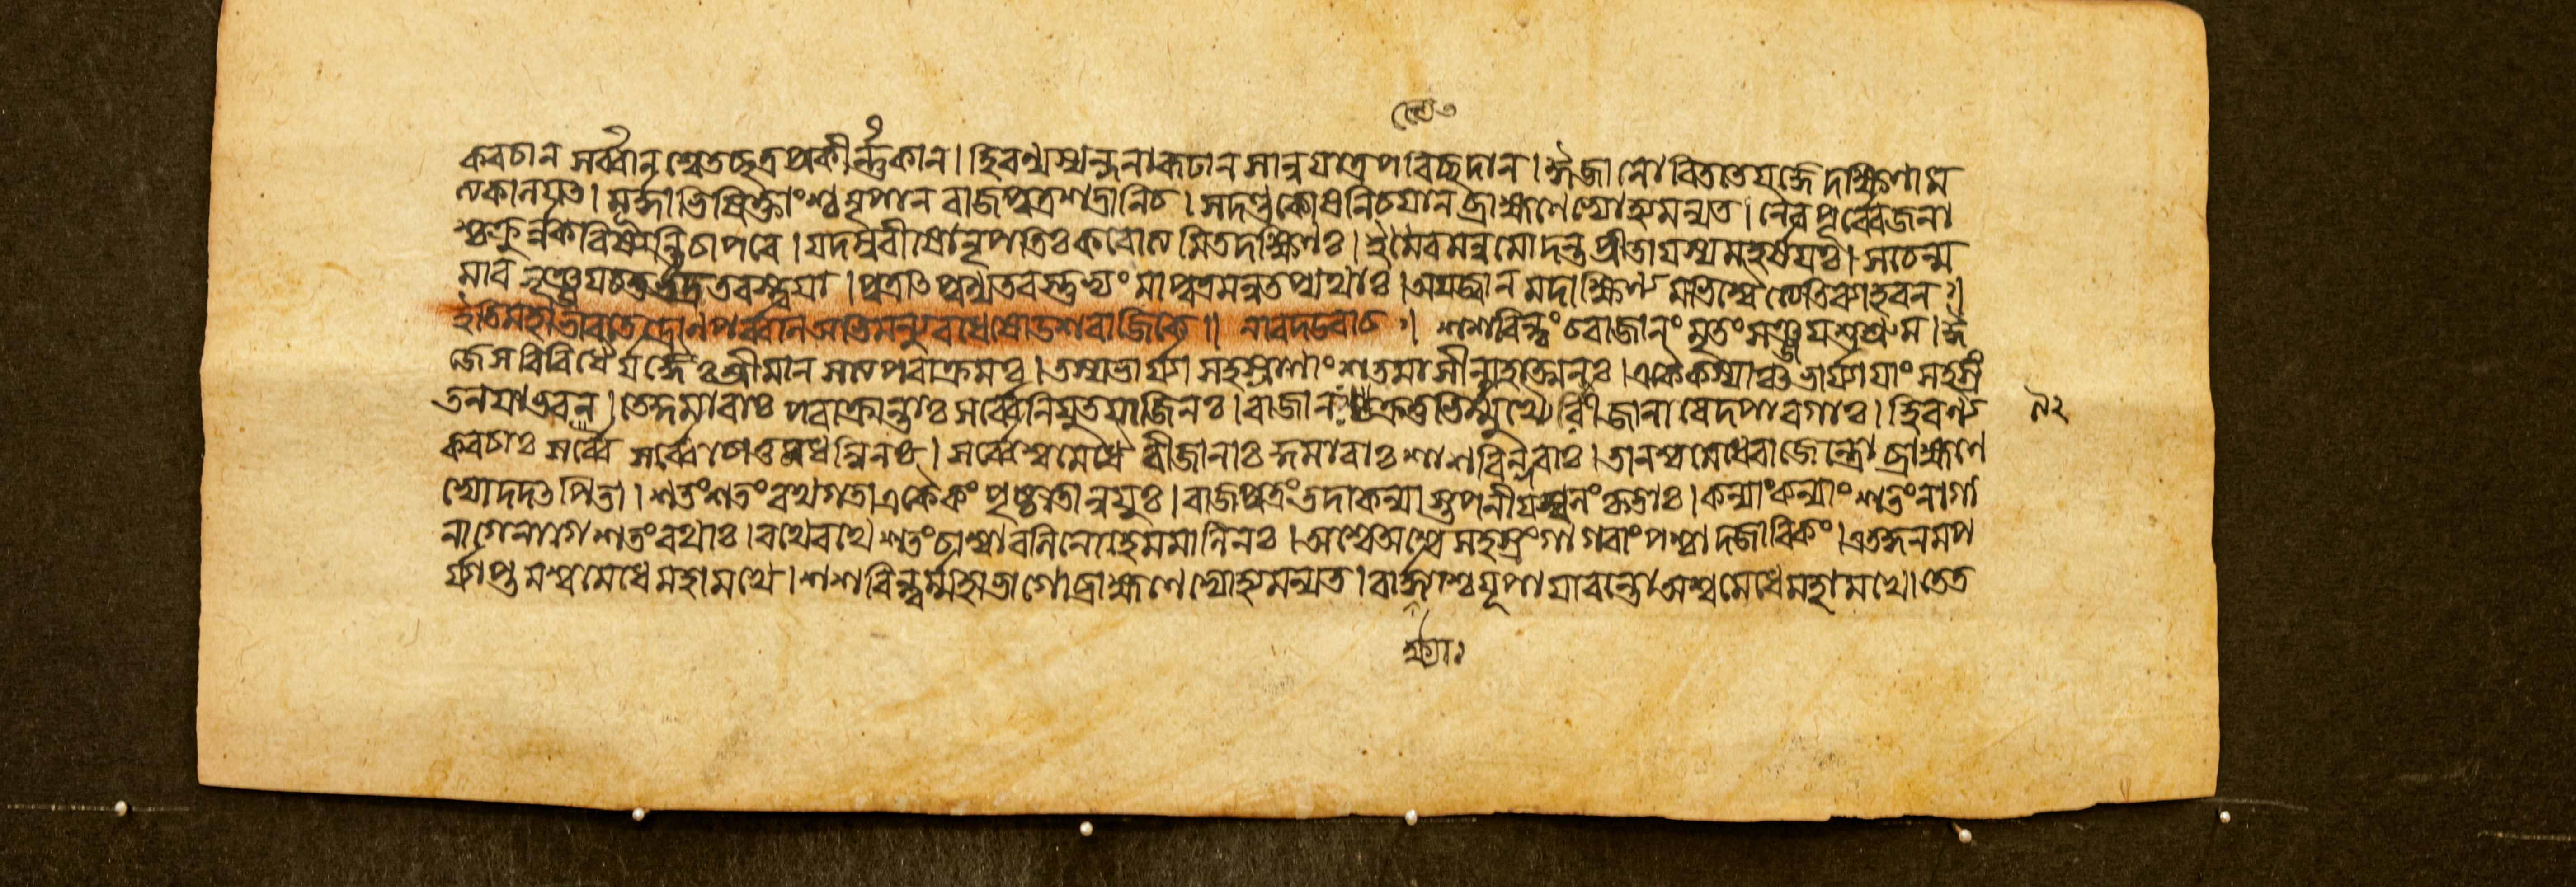 কবচান সর্ব্বান শ্বেতচ্ছত্র প্রকীর্ন্নকান। হিরণ্যস্যন্দনারূঢান সানুযাত্রপরিচ্ছদান। ঈজানো বিততে যজ্ঞে দক্ষিণাম
ত্যকালয়ত। মূর্দ্ধাভিষিক্তাংশ্চ নৃপান রাজপুত্রশতানি চ। সদণ্ডকোষনিচয়ান ব্রাহ্মণেভ্যোহ্যমন্যত। নৈব পূর্ব্বে জনা
শ্চক্রুর্ন্ন করিষ্যন্তি চাপরে। যদম্বরীষো নৃপতিঃ করোত্যমিতদক্ষিণঃ। ইত্যেবমন্বমোদন্ত প্রীতা যস্য মহর্ষয়ঃ। স চেন্ম
মার সৃঞ্জয় চতুর্ভদ্রতরস্ত্বয়া। পুত্রাৎ পুণ্যতরস্তুভ্যং মা পুত্রমনুতপ্যথাঃ। অযজ্বানমদাক্ষিণ্যমভি শ্বৈত্যেতি ব্যাহরন॥
ইতি মহাভারতে দ্রোণপর্ব্বনি অভিমন্যুবধে ষোডশরাজিকে॥ নারদ উবাচ॥ শশবিন্দুং চ রাজানং মৃতং সৃঞ্জয় শুশ্রুম। ঈ
জে স বিবিধৈর্যজ্ঞৈঃ শ্রীমান সত্যপরাক্রমঃ। তস্য ভার্য্যাসহস্রাণাং শতমাসীন্মহাত্মনঃ। একৈকস্যাঞ্চ ভার্য্যায়াং সহস্রং
তনয়াভবন। তে কুমারাঃ পরাক্রান্তাঃ সর্ব্বে নিযুতযাজিনঃ। রাজানঃ ক্রতুভির্ম্মুখ্যৈরীজানা বেদপারগাঃ। হিরণ্য
৭২
কবচাঃ সর্ব্বে সর্ব্বে চোত্তমধন্বিনঃ। সর্ব্বেশ্বমেধৈরীজানাঃ কুমারাঃ শাশবিন্দবাঃ। তানশ্বমেধে রাজেন্দ্রো ব্রাহ্মণে
ভ্যোদদৎ পিতা। শতং শতং রথগতা একৈকং পৃষ্ঠতোন্বয়ুঃ। রাজপুত্রং তদা কন্যাস্তপনীয়স্বলংকৃতাঃ। কন্যাং কন্যাং শতং নাগা
নাগে নাগে শতং রথাঃ। রথে রথে শতং চাশ্বা বলিনো হেমমালিনঃ। অশ্বে অশ্বে সহস্রং গা গবাং পশ্চাদজাবিকং। এতদ্ধনমপ
র্য্যাপ্তমশ্বমেধে মহামখে। শশবিন্দুর্ম্মহাভাগো ব্রাহ্মণেভ্যোহ্যমন্যত। বার্ক্ষাশ্চ যূপা যাবন্তো অশ্বমেধে মহামখে। তে ত